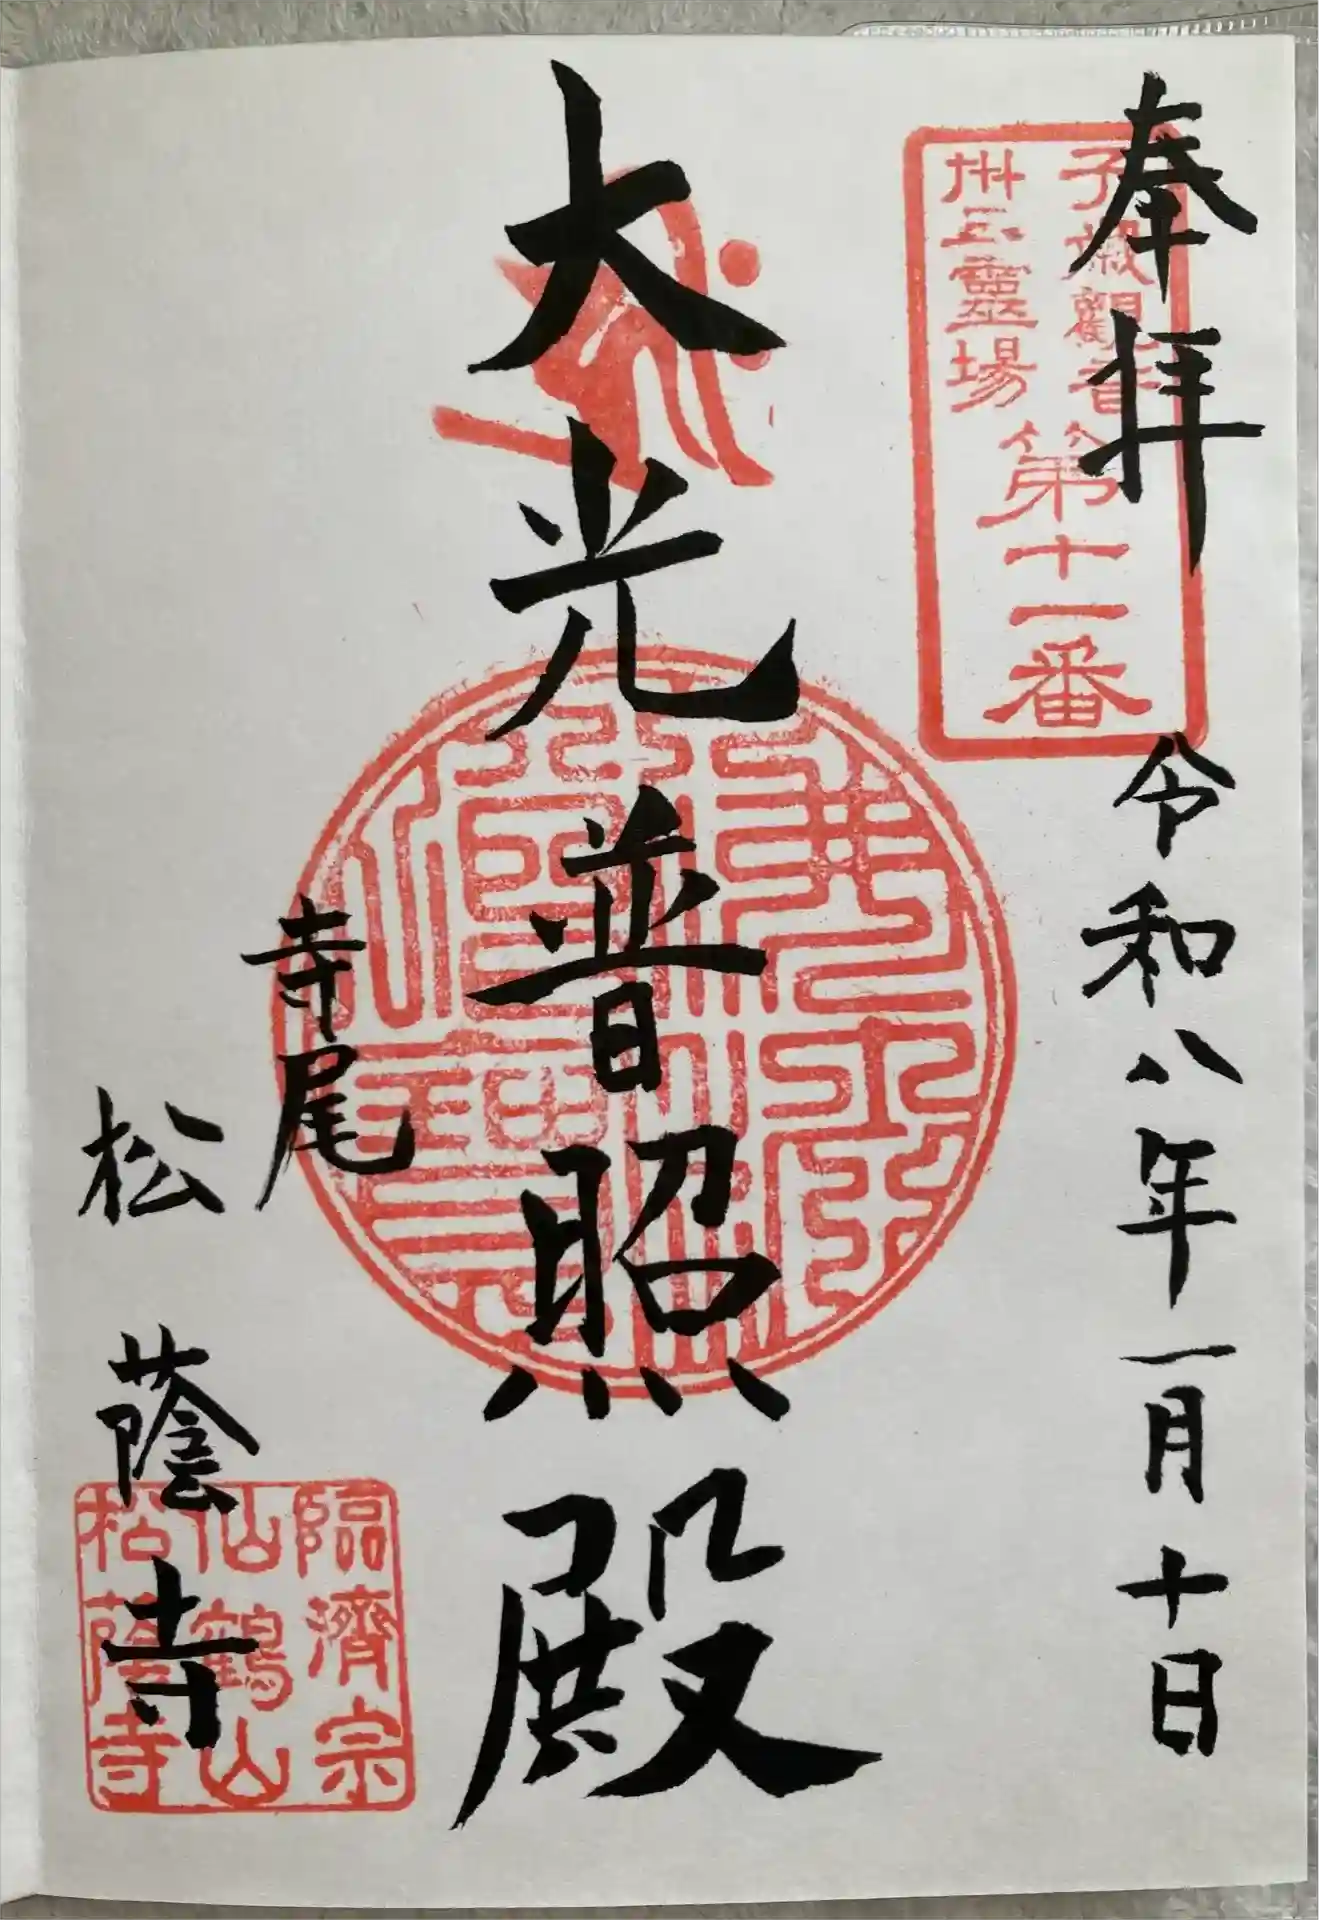 奉拝
令和八年一月十日
子歳觀音
卅三靈場
第十一番
大光普照殿
寺尾
松蔭寺
臨濟宗
仙鶴山
松蔭寺